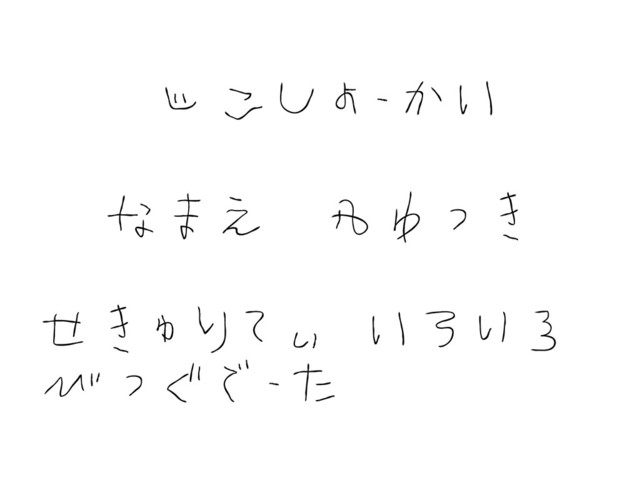 じこしょーかい
なまえ みゆっき
せきゅりてぃ いろいろ
びっぐでーた